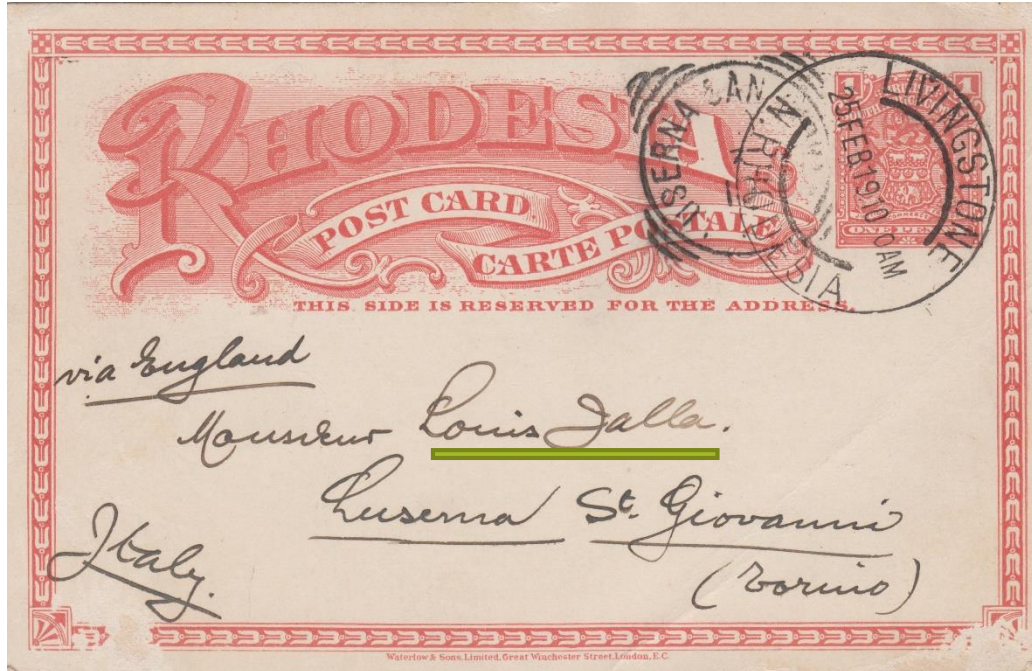 RHODESIA
POST CARD
CARTE POSTALE
THIS SIDE IS RESERVED FOR THE ADDRESS.
1 1
ONE PENNY
LIVINGSTONE
25 FEB 1910 10 AM
N.W. RHODESIA
LUSERNA SAN
via England
Monsieur Louis Jalla.
Luserna St. Giovanni
(Torino)
Italy.
Waterlow & Sons, Limited, Great Winchester Street, London, E.C.